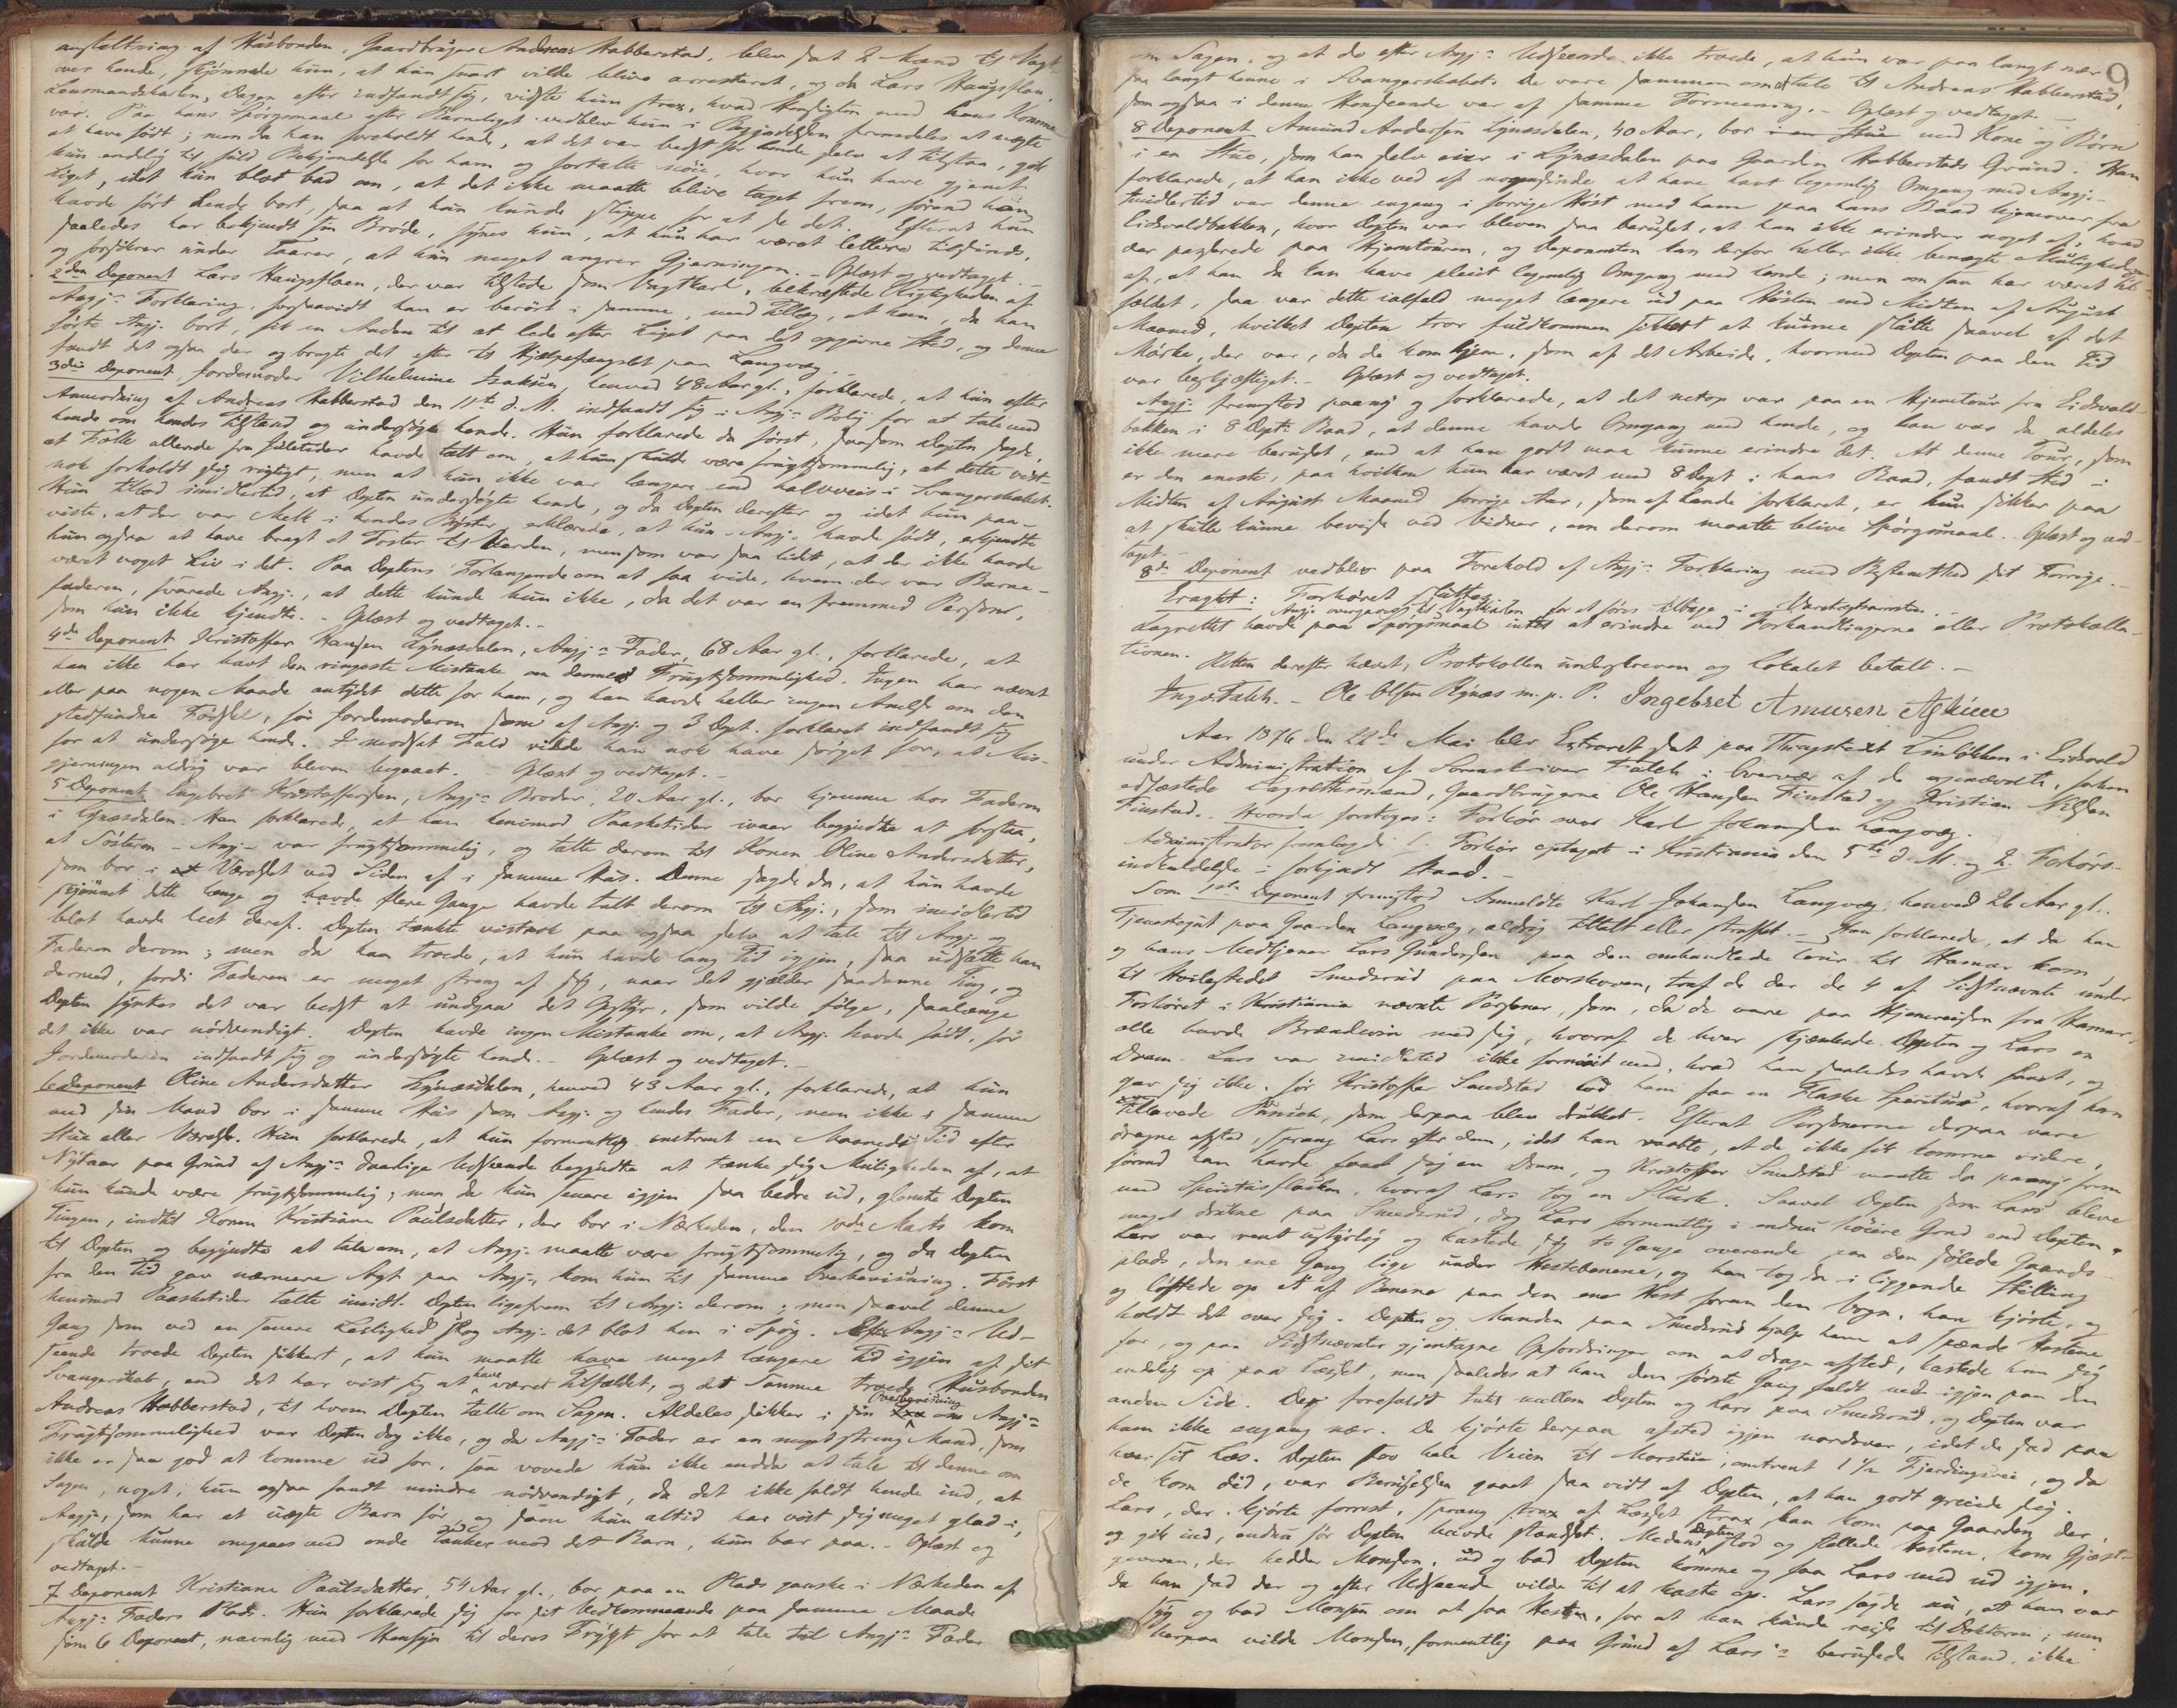 anstaltning af Husbonden, Gaardbruger Andreas Habberstad, blev sat 2 Mænd til Vagt
over hende, skjønnede hun, at hun snart vilde blive arresteret, og da Lars Haugsflaen,
Lensmandskarlen, Dagen efter indfandt sig, vidste hun strax, hvad Hensigten med hans Komme
var. Paa hans Spörgsmaal efter Barneliget vedblev hun i Begyndelsen fremdeles at negte
at have födt; men da han foreholdt hende, at det var bedst for hende selv at tilstaa, gik
hun endelig til fuld Bekjendelse for ham og fortalte nöie, hvor hun havde gjemt
Liget, idet hun blot bad om, at det ikke maatte blive taget frem, förend han
havde fört hende bort, saa at hun kunde slippe for at se det. Efterat hun
saaledes har bekjendt sin Bröde, synes hun, at hun har været lettere tilsinds,
og forsikrer under Taarer, at hun meget angrer Gjerningen. - Oplæst og vedtaget. -
2den Deponent Lars Haugsflaen, der var tilstede som Vagtkarl, bekræftede Rigtigheden af
Angj:s Forklaring, forsaavidt han er berört i samme, med Tillæg, at han, da han
förte Angj. bort, fik en Anden til at lede efter Liget paa det opgivne Sted, og denne
fandt det ogsaa der og bragte det efter til Hjælpefængslet paa Langvæg. -
3die Deponent Jordemoder Vilhelmine Isaksen, henved 48 Aar gl., forklarede, at hun efter
Anmodning af Andreas Habberstad den 11te d. M. indfandt sig i Angj:s Bolig for at tale med
hende om hendes Tilstand og undersöge hende. Hun forklarede da först, saasom Depten sagde,
at Folk allerede fra Juletider havde talt om, at hun skulde være frugtsommelig, at dette vist-
nok forholdt sig rigtigt, men at hun ikke var længere end halvveis i Svangerskabet.
Hun tillod imidlertid, at Depten undersögte hende, og da Depten derefter og idet hun paa-
viste, at der var Melk i hendes Bryster, erklærede, at hun - Angj. - havde födt, erkjendte
hun ogsaa at have bragt et Foster til Verden, men som var saa lidt, at der ikke havde
været noget Liv i det. Paa Deptens Forlangende om at faa vide, hvem der var Barne-
faderen, svarede Angj., at dette kunde hun ikke, da det var en fremmed Person,
som hun ikke kjendte. - Oplæst og vedtaget. -
4de Deponent Kristoffer Hansen Lynæsdalen, Angj:s Fader, 68 Aar gl., forklarede, at
han ikke har havt den ringeste Mistanke om dennes Frugtsommelighed. Ingen har nævnt
eller paa nogen Maade antydet dette for ham, og han havde heller ingen Anelse om den
stedfundne Födsel, för Jordemoderen som af Angj. og 3 Dept. forklaret indfandt sig
for at undersöge hende. I modsat Fald vilde han nok have sörget for, at Mis-
gjerningen aldrig var bleven begaaet. - Oplæst og vedtaget. -
5 Deponent Engebret Kristoffersen, Angj:s Broder, 20 Aar gl., bor hjemme hos Faderen
i Lynæsdalen. Han forklarede, at han henimod Paasketider ivaar begyndte at forstaa,
at Sösteren - Angj. - var frugtsommelig, og talte derom til Konen Oline Andersdatter,
som bor i et Værelset ved Siden af i samme Hus. Denne sagde da, at hun havde
skjönnet dette længe og havde flere Gange havde talt derom til Angj., som imidlertid
blot havde leet deraf. Depten tænkte vistnok paa ogsaa selv at tale til Angj. og
Faderen derom; men da han troede, at hun havde lang Tid igjen, saa udsatte han
dermed, fordi Faderen er meget streng af sig, naar det gjælder saadanne Ting, og
Depten syntes det var bedst at undgaa det Opstyr, som vilde fölge, saalænge
det ikke var nödvendigt. Depten havde ingen Mistanke om, at Angj. havde födt, för
Jordemoderen indfandt sig og undersögte hende. - Oplæst og vedtaget. -
6 Deponent Oline Andersdatter Lynæsdalen, henved 43 Aar gl., forklarede, at hun
med sin Mand bor i samme Hus som Angj. og hendes Fader, men ikke i samme
Stue eller Værelse. Hun forklarede, at hun formentlig omtrent en Maaneds Tid efter
Nytaar paa Grund af Angj:s daarlige Udseende begyndte at tænke sig Muligheden af, at
hun kunde være frugtsommelig; men da hun senere igjen saa bedre ud, glemte Depten
Tingen, indtil Konen Kristiane Paulsdatter, der bor i Nærheden, den 10de Marts kom
til Depten og begyndte at tale om, at Angj. maatte være frugtsommelig, og da Depten
fra den Tid gav nærmere Agt paa Angj., kom hun til samme Overbevisning. Först
henimod Paasketider talte imidt. Depten ligefrem til Angj. derom; men saavel denne
Gang som ved en senere Leilighed slog Angj. det blot hen i Spög. Efter Angj:s Ud-
seende troede Depten sikkert, at hun maatte have meget længere Tid igjen af sit
Svangerskab, end det har vist sig at have været Tilfældet, og det Samme troede Husbonden
Andreas Habberstad, til hvem Depten talte om Sagen. Aldeles sikker i sin Overbevisning om Angj:s
Frugtsommelighed var Depten dog ikke, og da Angj:s Fader er en meget streng Mand, som
ikke er saa god at komme ud for, saa vovede hun ikke endda at tale til denne om
Sagen, noget, hun ogsaa fandt mindre nödvendigt, da det ikke faldt hende ind, at
Angj., som har et uægte Barn för, og som hun altid har vist sig meget glad i,
skulde kunne omgaaes med onde Tanker mod det Barn, hun bar paa. - Oplæst og
vedtaget. -
7 Deponent Kristiane Paulsdatter, 54 Aar gl., bor paa en Plads ganske i Nærheden af
Angj:s Faders Plads. Hun forklarede sig for sit Vedkommende paa samme Maade
som 6 Deponent, navnlig med Hensyn til deres Frygt for at tale til Angj:s Fader
9
om Sagen, og at de efter Angj:s Udseende ikke troede, at hun var paa langt nær
saa langt henne i Svangerskabet. De vare sammen om at tale til Andreas Habberstad,
som ogsaa i denne Henseende var af samme Formening. - Oplæst og vedtaget. -
8 Deponent Amund Andersen Lynæsdalen, 40 Aar, bor i en Stue med Kone og Börn
i en Stue, som han selv eier i Lynæsdalen paa Gaarden Habberstads Grund. Han
forklarede, at han ikke ved af nogensinde at have havt legemlig Omgang med Angj. -
Imidlertid var denne engang i forrige Höst med ham paa hans Baad hjemover fra
Eidsvoldbakken, hvor Depten var bleven saa beruset, at han ikke erindrer noget af, hvad
der passerede paa Hjemtouren, og Deponenten kan derfor heller ikke benægte Muligheden
af, at han da kan have pleiet legemlig Omgang med hende; men om saa har været Til-
fældet, saa var dette ialfald meget længere ud paa Hösten end Midten af August
Maaned, hvilket Depten tror fuldkommen sikkert at kunne slutte saavel af det
Mörke, der var, da de kom hjem, som af det Arbeide, hvormed Depten paa den Tid
var beskjæftiget. - Oplæst og vedtaget.
Angj. fremstod paany og forklarede, at det netop var paa en Hjemtour fra Eidsvold-
bakken i 8 Depts Baad, at denne havde Omgang med hende, og han var da aldeles
ikke mere beruset, end at han godt maa kunne erindre det. At denne Tour, som
er den eneste, paa hvilken hun har været med 8 Dept. i hans Baad, fandt Sted i
Midten af August Maaned forrige Aar, som af hende forklaret, er hun sikker paa
at skulle kunne bevise ved Vidner, om derom maatte blive Spörgsmaal. - Oplæst og ved-
taget. -
8de Deponent vedblev paa Forehold af Angj:s Forklaring med Bestemthed sit Forrige. -
Eragtet: Forhöret sluttes.
Angj. overgaves til Vagtkarlen for at föres tilbage i Varetægtsarresten. -
Lagrettet havde paa Spörgsmaal intet at erindre ved Forhandlingerne eller Protokolla-
tionen. Retten derefter hævet, Protokollen underskreven og Lokalet betalt. -
Ingv. Falch. - Ole Olsen Rynæs m. p. P. Ingebret Amusen Askim
Aar 1876 den 22de Mai blev Extraret sat paa Thingstedet Lindlökken i Eidsvold
under Administration af Sorenskriver Falch i Overvær af de opnævnte, forhen
edfæstede Lagrettesmænd, Gaardbrugerne Ole Hansen Finstad og Kristian Nilsen
Finstad. - Hvorda foretoges: Forhör over Karl Johansen Langvæg.
Administrator fremlagde 1. Forhör optaget i Kristiania den 5te d. M. og 2. Forhörs-
indkaldelse i forkyndt Stand. -
Som 1ste Deponent fremstod Anmeldte Karl Johansen Langvæg, henved 26 Aar gl.,
Tjenestegut paa Gaarden Langvæg, aldrig tiltalt eller straffet. - Han forklarede, at da han
og hans Medtjener Lars Gundersen paa den omhandlede Tour til Hamar kom
til Hvilestedet Smedsrud paa Morskoven, traf de der de 4 af Sidstnævnte under
Forhöret i Kristiania nævnte Personer, som, da de vare paa Hjemreisen fra Hamar,
alle havde Brændevin med sig, hvoraf de hver skjænkede Depten og Lars en
Dram. Lars var imidlertid ikke fornöiet med, hvad han saaledes havde faaet, og
gav sig ikke, för Kristoffer Smedstad lod ham faa en Flaske Spiritus, hvoraf han
tillavede Punsch, som derpaa blev drukket. Efterat Personerne derpaa vare
dragne afsted, sprang Lars efter dem, idet han raabte, at de ikke fik komme videre,
förend han havde faaet sig en Dram, og Kristoffer Smedstad maatte da paany frem
med Spiritusflasken, hvoraf Lars tog en Slurk. Saavel Depten som Lars bleve
meget drukne paa Smedsrud, dog Lars formentlig i endnu höiere Grad end Depten.
Lars var rent ustyrlig og kastede sig to Gange overende paa den sölede Gaards-
plads, den ene Gang lige under Hestebenene, og han tog da i liggende Stilling
og löftede op et af Benene paa den ene Hest foran den Vogn, han kjörte, og
holdt det over sig. Depten og Manden paa Smedsrud hjalp ham at spænde Hestene
for, og paa Sidstnævntes gjentagne Opfordringer om at drage afsted, kastede han sig
endelig op paa Læsset, men saaledes at han den förste Gang faldt ned igjen paa den
anden Side. Der forefaldt intet mellem Depten og Lars paa Smedsrud, og Depten var
ham ikke engang nær. De kjörte derpaa afsted igjen nordover, idet de sad paa
hver sit Læs. Depten sov hele Veien til Morstue, omtrent 1 1/2 Fjerdingsvei, og da
de kom did, var Beruselsen gaaet saa vidt af Depten, at han godt greiede sig.
Lars, der kjörte forrest, sprang strax af Læsset strax han kom paa Gaarden der,
og gik ind, endnu för Depten havde standset. Medens Depten stod og stellede Hestene, kom Gjæst-
giveren, der hedder Monsen, ud og bad Depten komme og faa Lars med ud igjen,
da han sad der og efter Udseende vilde til at kaste op. Lars sagde nu, at han var
syg og bad Monsen om at faa Hesten, for at han kunde reise til Doktoren; men
herpaa vilde Monsen, formentlig paa Grund af Lars's berusede Tilstand, ikke